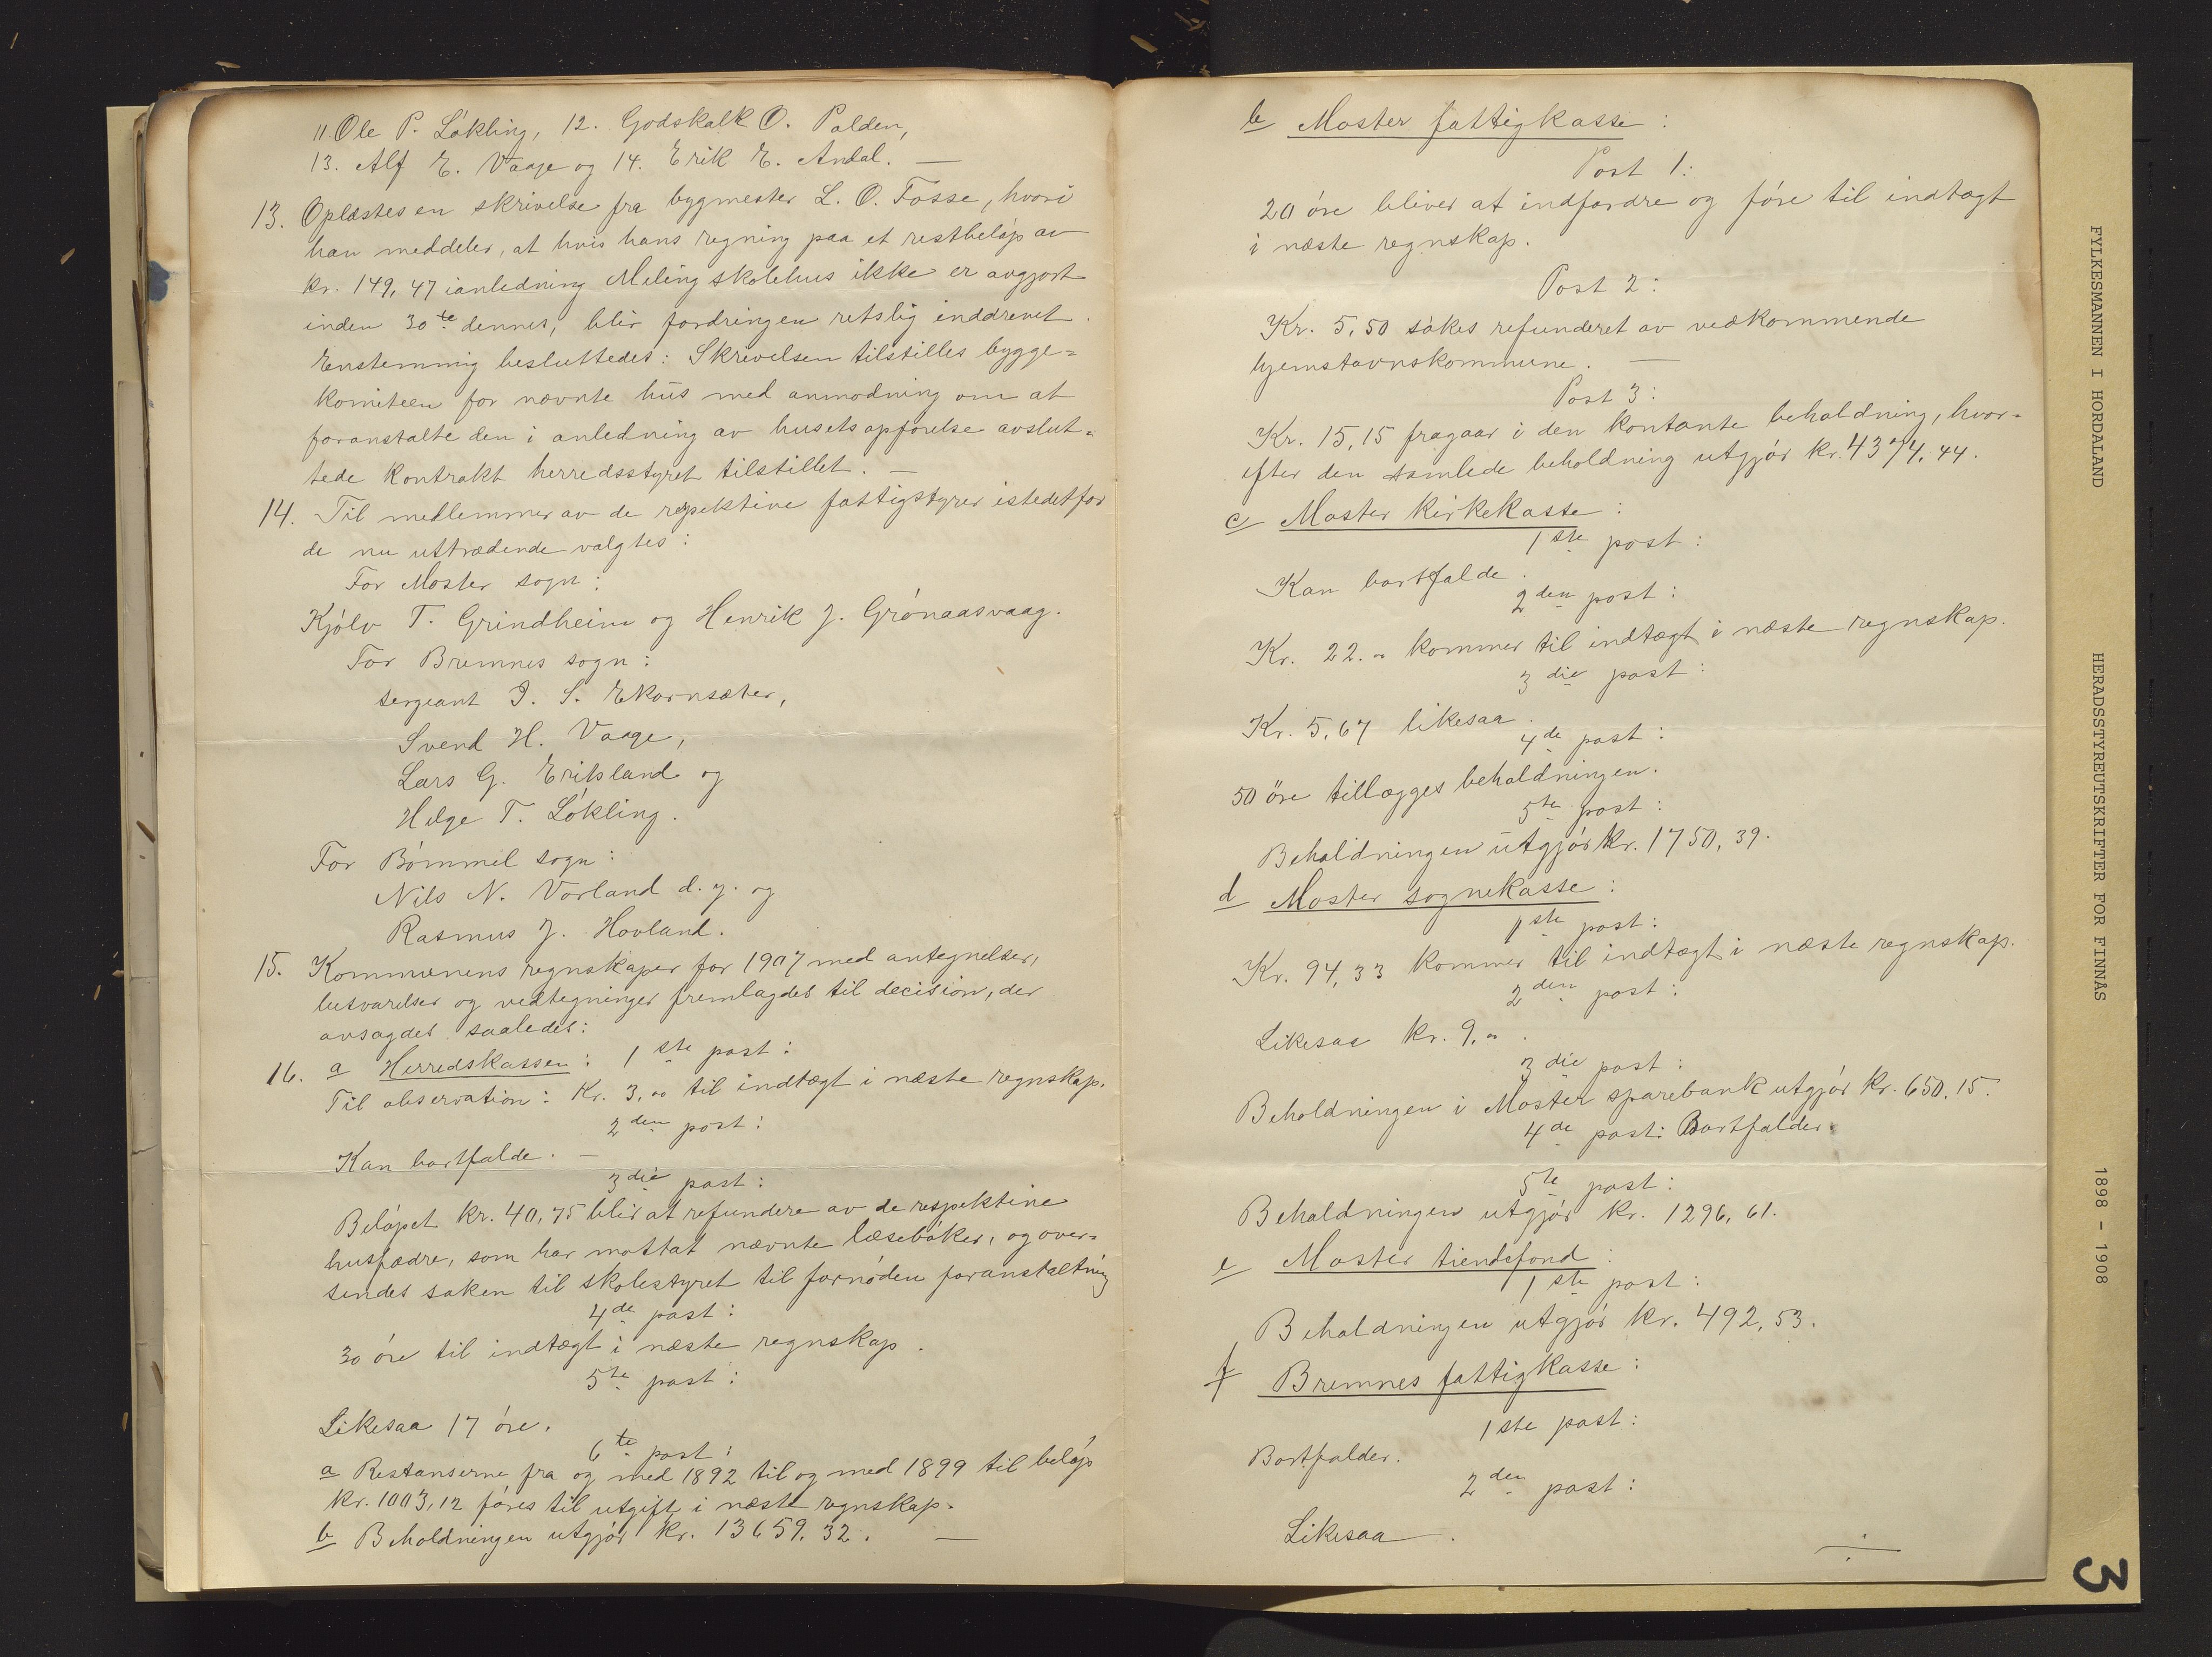 11 Ole P. Løkling, 12. Godskalk O. Polden,
13. Alf E. Vaage og 14. Erik E. Andal. —
13. Oplæstes en skrivelse fra bygmester L. O. Fosse, hvori
han meddeler, at hvis hans regning paa et restbeløp av
kr. 149,47 ianledning Meling skolehus ikke er avgjort
inden 30te dennes, blir fordringen retslig inddrevet.
Enstemmig besluttedes: Skrivelsen tilstilles bygge=
komiteen for nævnte hus med anmodning om at
foranstalte den i anledning av husets opførelse avslut=
tede kontrakt herredsstyret tilstillet. —
14. Til medlemmer av de respektive fattigstyrer istedetfor
de nu uttrædende valgtes:
For Moster sogn:
Kjølv T. Grindheim og Henrik J. Grønaasvaag.
For Bremnes sogn:
sergeant I. S. Ekornsæter,
Svend H. Vaage,
Lars G. Eriksland og
Helge T. Løkling.
For Bømmel sogn:
Nils N. Vorland d. y. og
Rasmus J. Hovland.
15. Kommunens regnskaper for 1907 med antegnelser,
besvarelser og vedtegninger fremlagdes til decision, der
avsagdes saaledes:
16. a Herredskassen: 1ste post:
Til observation: Kr. 3,00 til indtægt i næste regnskap.
2den post:
Kan bortfalde. —
3die post:
Beløpet kr. 40,75 blir at refundere av de respektive
husfædre, som har mottat nævnte læsebøker, og over=
sendes saken til skolestyret til fornøden foranstaltning
4de post:
30 øre til indtægt i næste regnskap.
5te post:
Likesaa 17 øre.
6te post:
a Restanserne fra og med 1892 til og med 1899 til beløp
kr. 1003,12 føres til utgift i næste regnskap.
b Beholdningen utgjør kr. 13659,32. —
b Moster fattigkasse:
Post 1:
20 øre bliver at indfordre og føre til indtægt
i næste regnskap.
Post 2:
Kr. 5,50 søkes refunderet av vedkommende
hjemstavnskommune. —
Post 3:
Kr. 15,15 fragaar i den kontante beholdning, hvor=
efter den samlede beholdning utgjør kr. 4374,44.
c Moster kirkekasse:
1ste post:
Kan bortfalde.
2den post:
Kr. 22.„ kommer til indtægt i næste regnskap.
3die post:
Kr. 5,67 likesaa.
4de post:
50 øre tillægges beholdningen.
5te post:
Beholdningen utgjør kr. 1750,39.
d Moster sognekasse:
1ste post:
Kr. 94,33 kommer til indtægt i næste regnskap.
2den post:
Likesaa kr. 9,„.
3die post:
Beholdningen i Moster sparebank utgjør kr. 650,15.
4de post: Bortfalder.
5te post:
Beholdningen utgjør kr. 1296,61.
e Moster tiendefond:
1ste post:
Beholdningen utgjør kr. 492,53.
f Bremnes fattigkasse:
1ste post:
Bortfalder.
2den post:
Likesaa.
FYLKESMANNEN I HORDALAND HERADSSTYREUTSKRIFTER FOR FINNÅS 1898 - 1908
3